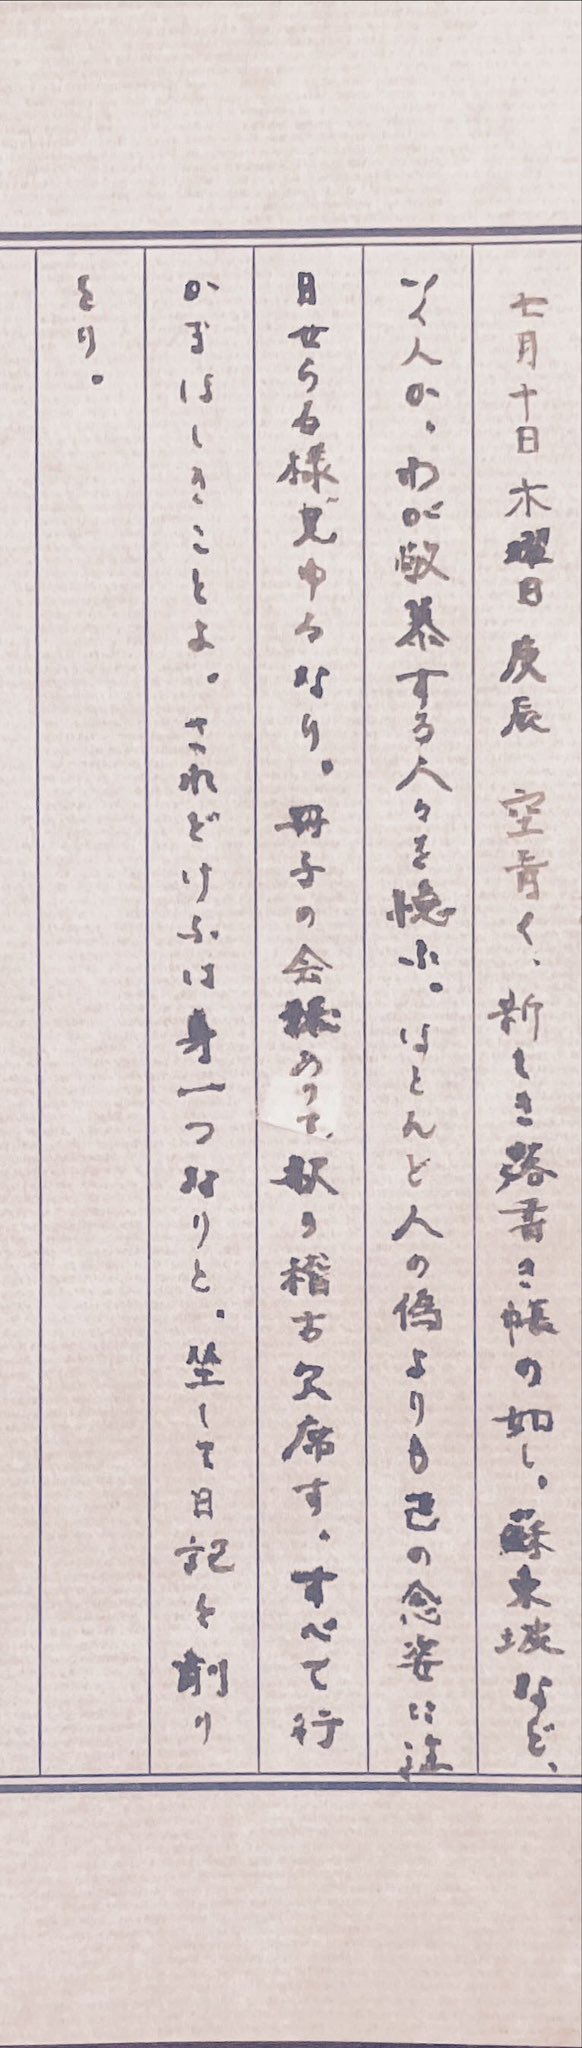 七月十日木曜日庚辰　空青く、新しき落書き帳の如し。蘇東坡など、
いく人か、わが敬慕する人々を憶ふ。ほとんど人の偽よりも己の念姿に注
目せらる様が見ゆるなり。冊子の会議めりて、奴の稽古欠席す。すべて行
かまほしきことよ。されどけふは身一つなりと。坐して日記を削り
をり。